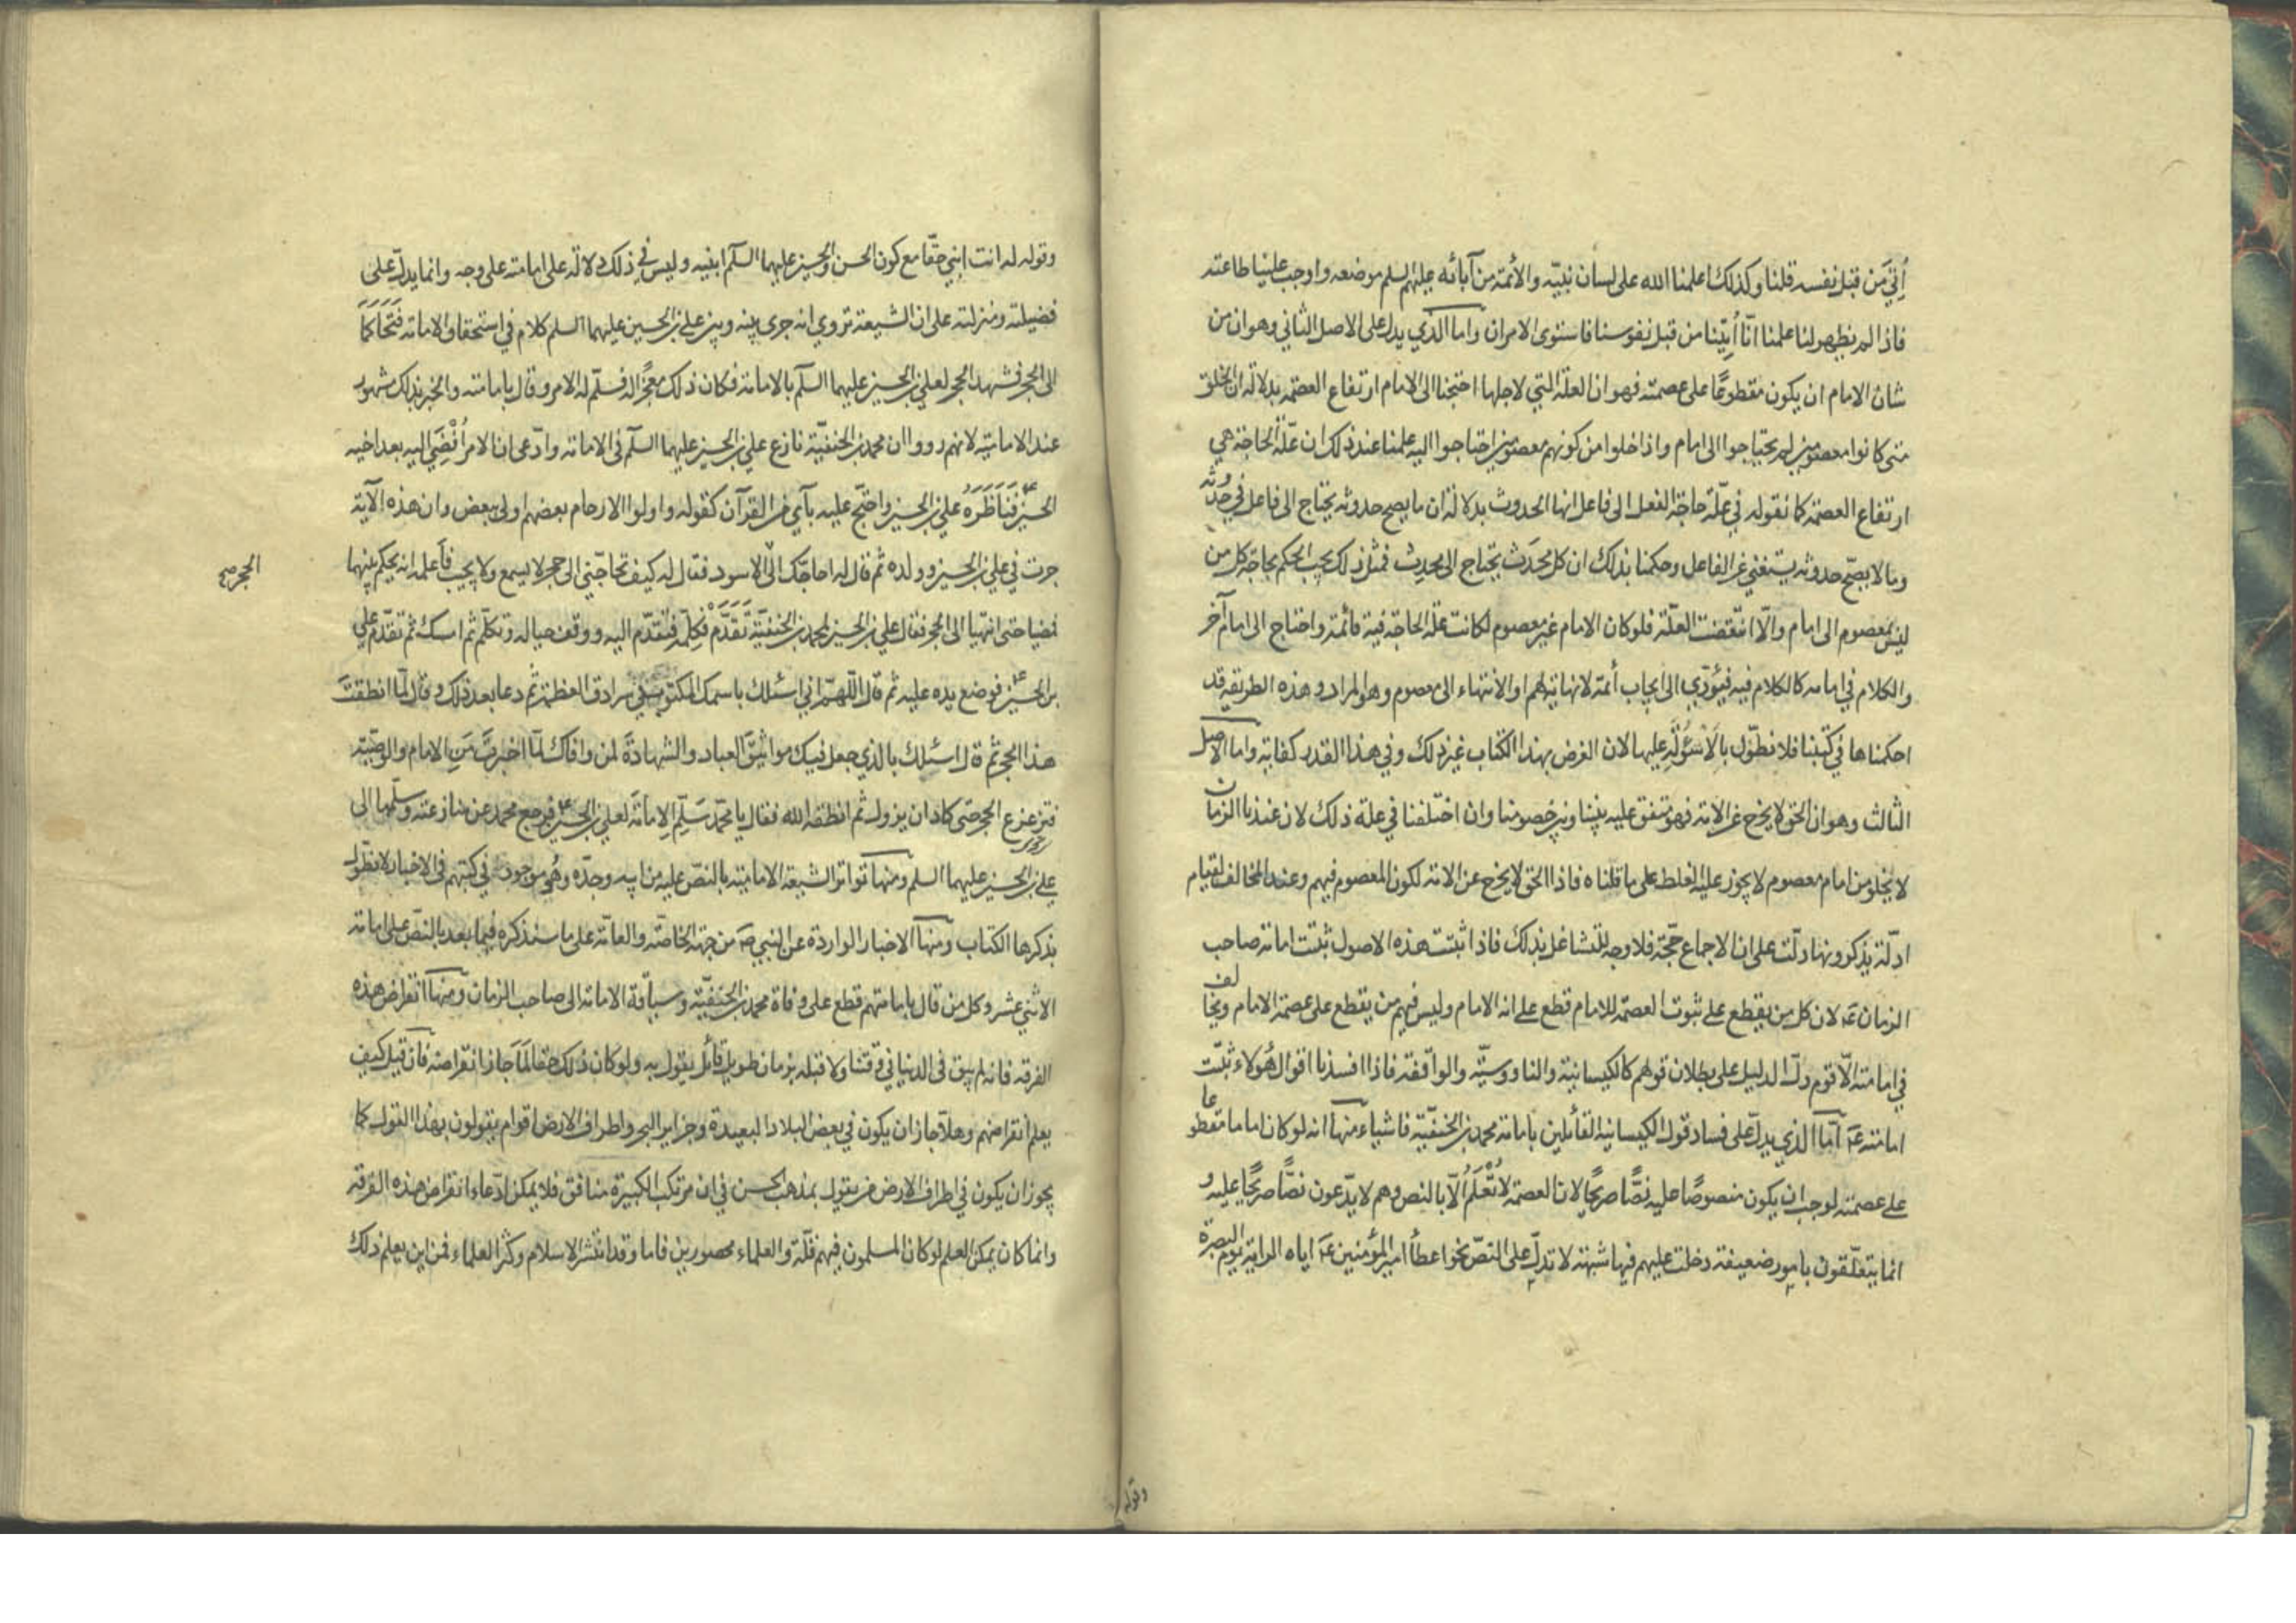 أُتِيَ مَن قبل نفسه قلنا وكذلك اعلمنا الله على لسان نبيّه والأئمة من آبائه عليهم السلم موضعه واوجب علينا طاعته
فاذا لم يظهر لنا علمنا انّا أُتِيْنا من قبل نفوسنا فاستوى الامران واما الذي يدل على الاصل الثاني وهو ان من
شان الامام ان يكون مقطوعًا على عصمته فهو ان العلة التي لاجلها احتجنا الى الامام ارتفاع العصمة بدلالة ان الخلق
متى كانوا معصومين لم يحتاجوا الى امام واذا خلوا من كونهم معصومين احتاجوا اليه علمنا عند ذلك ان علّة الحاجة هي
ارتفاع العصمة كما نقوله في علّة حاجة الفعل الى فاعل انها الحدوث بدلالة ان ما يصح حدوثه يحتاج الى فاعل في حُدُثه
وما لا يصحّ حدوثه يستغني عن الفاعل وحكمنا بذلك ان كل محدَث يحتاج الى محدِث فمثل ذلك يجب الحكم بحاجة كل من
ليس بمعصوم الى امام والّا انتقضت العلّة فلو كان الامام غير معصوم لكانت علة الحاجة فيه قائمة واحتاج الى امام آخر
والكلام في امامه كالكلام فيه فيُؤدّي الى ايجاب أئمة لا نهاية لهم او الانتهاء الى معصوم وهو المراد وهذه الطريقة قد
احكمناها في كتبنا فلا نطوّل بالأسْوُلَة عليها لان الغرض بهذا الكتاب غير ذلك وفي هذا القدر كفاية واما الاصل
الثالث وهو ان الحق لا يخرج عن الامة فهو متفق عليه بيننا وبين خصومنا وان اختلفنا في علة ذلك لان عندنا ان الزمان
لا يخلو من امام معصوم لا يجوز عليه الغلط على ما قلناه فاذا الحق لا يخرج عن الامة لكون المعصوم فيهم وعند المخالف لقيام
ادلّة يذكرونها دلّت على ان الاجماع حجّة فلا وجه للتشاغل بذلك فاذا ثبتت هذه الاصول ثبتت امامة صاحب
الزمان عۤ لان كل من يقطع على ثبوت العصمة للامام قطع على انه الامام وليس فيهم من يقطع على عصمة الامام ويخالف
في امامته الّا قوم دلّ الدليل على بطلان قولهم كالكيسانية والناووسيّة والواقفة فاذا افسدنا اقوال هُولاء ثبتت
امامته عۤ امّا الذي يدلّ على فساد قول الكيسانية القائلين بامامة محمد بن الحنفيّة فاشياء منها انه لو كان اماما مقطوعا
على عصمته لوجب ان يكون منصوصًا عليه نصًّا صريحًا لان العصمة لا تُعْلَمُ الّا بالنص وهم لا يدّعون نصًّا صريحًا عليه و
انما يتعلّقون بامور ضعيفة دخلت عليهم فيها شبهة لا تدلّ على النصّ نحو اعطأ امير المؤمنين عۤ اياه الراية يوم البصرة
وقوله
وقوله له انت ابني حقّا مع كون الحسن والحسين عليهما السلم ابنيه وليس في ذلك دلالة على امامته على وجه وانما يدلّ على
فضيلته ومنزلته على ان الشيعة تروي انه جرى بينه وبين علي بن الحسين عليهما السلم كلام في استحقاق الامامة فَتَحَاكَمَا
الى الحجر فشهد الحجر لعلي بن الحسين عليهما السلم بالامامة فكان ذلك معجزًا له فسلّم له الامر وقال بامامته والخبر بذلك مشهور
عند الامامية لانهم رووا ان محمد بن الحنفيّة نازع علي بن الحسين عليهما السلم في الامامة وادّعى ان الامر اُفْضِيَ اليه بعد اخيه
الحسين عۤ فَنَاظَرَهُ علي بن الحسين واحتجّ عليه بآي من القرآن كقوله واولوا الارحام بعضهم اولى ببعض وان هذه الآية
جرت في علي بن الحسين وولده ثم قال له احاجّك الى الاسود فقال له كيف تحاجّني الى حجر لا يسمع ولا يجيب فاعلمه انه يحكم بينهما
الحجر صح
فمضيا حتى انتهيا الى الحجر فقال علي بن الحسين لمحمد بن الحنفيّة تَقَدَّمْ فكلّمه فتقدّم اليه ووقف حياله وتكلّم ثم امسك ثم تقدّم علي
بن الحسين عۤ فوضع يده عليه ثم قال اللّهمّ اني اسئلك باسمك المكتوب في سرادق العظمة ثم دعا بعد ذلك وقال لمّا انطقتَ
هذا الحجر ثم قال اسئلك بالذي جعل فيك مواثيقَ العباد والشهادةَ لمن وافاك لمّا اخبرتَ مَنِ الامام والوصيّ
فتزعزع الحجر حتى كاد ان يزول ثم انطقه الله فقال يا محمّد سَلِّم الامامةَ لعلي بن الحسين عۤ فرجع محمد عن منازعته وسلّمها الى
علي بن الحسين عليهما السلم ومنها تواتر الشيعة الامامية بالنصّ عليه من ابيه وجدّه وهُي موجودة في كتبهم في الاخبار لا نطوّل
بذكرها الكتاب ومنها الاخبار الواردة عن النبي صۤ من جهة الخاصّة والعامّة على ما سنذكره فيما بعد بالنصّ على امامة
الاثني عشر وكل من قال بامامتهم قطع على وفاة محمد بن الحنفيّة وسياقة الامامة الى صاحب الزمان ومنها انقراض هذه
الفرقة فانه لم يبق في الدنيا في وقتنا ولا قبله بزمان طويل قائل يقول به ولو كان ذلك حقا لَمَا جاز انقراضه فان قيل كيف
يعلم انقراضهم وهلّا جاز ان يكون في بعض البلاد البعيدة وجزاير البحر واطراف الارض اقوام يقولون بهذا القول كما
يجوز ان يكون في اطراف الارض من يقول بمذهب الحسن في ان مرتكب الكبيرة منافق فلا يمكن ادّعاء انقراض هذه الفرقة
وانما كان يمكن العلم لو كان المسلمون فيهم قلّة والعلماء محصورين فاما وقد انتشر الاسلام وكثر العلماء فمن اين يعلم ذلك